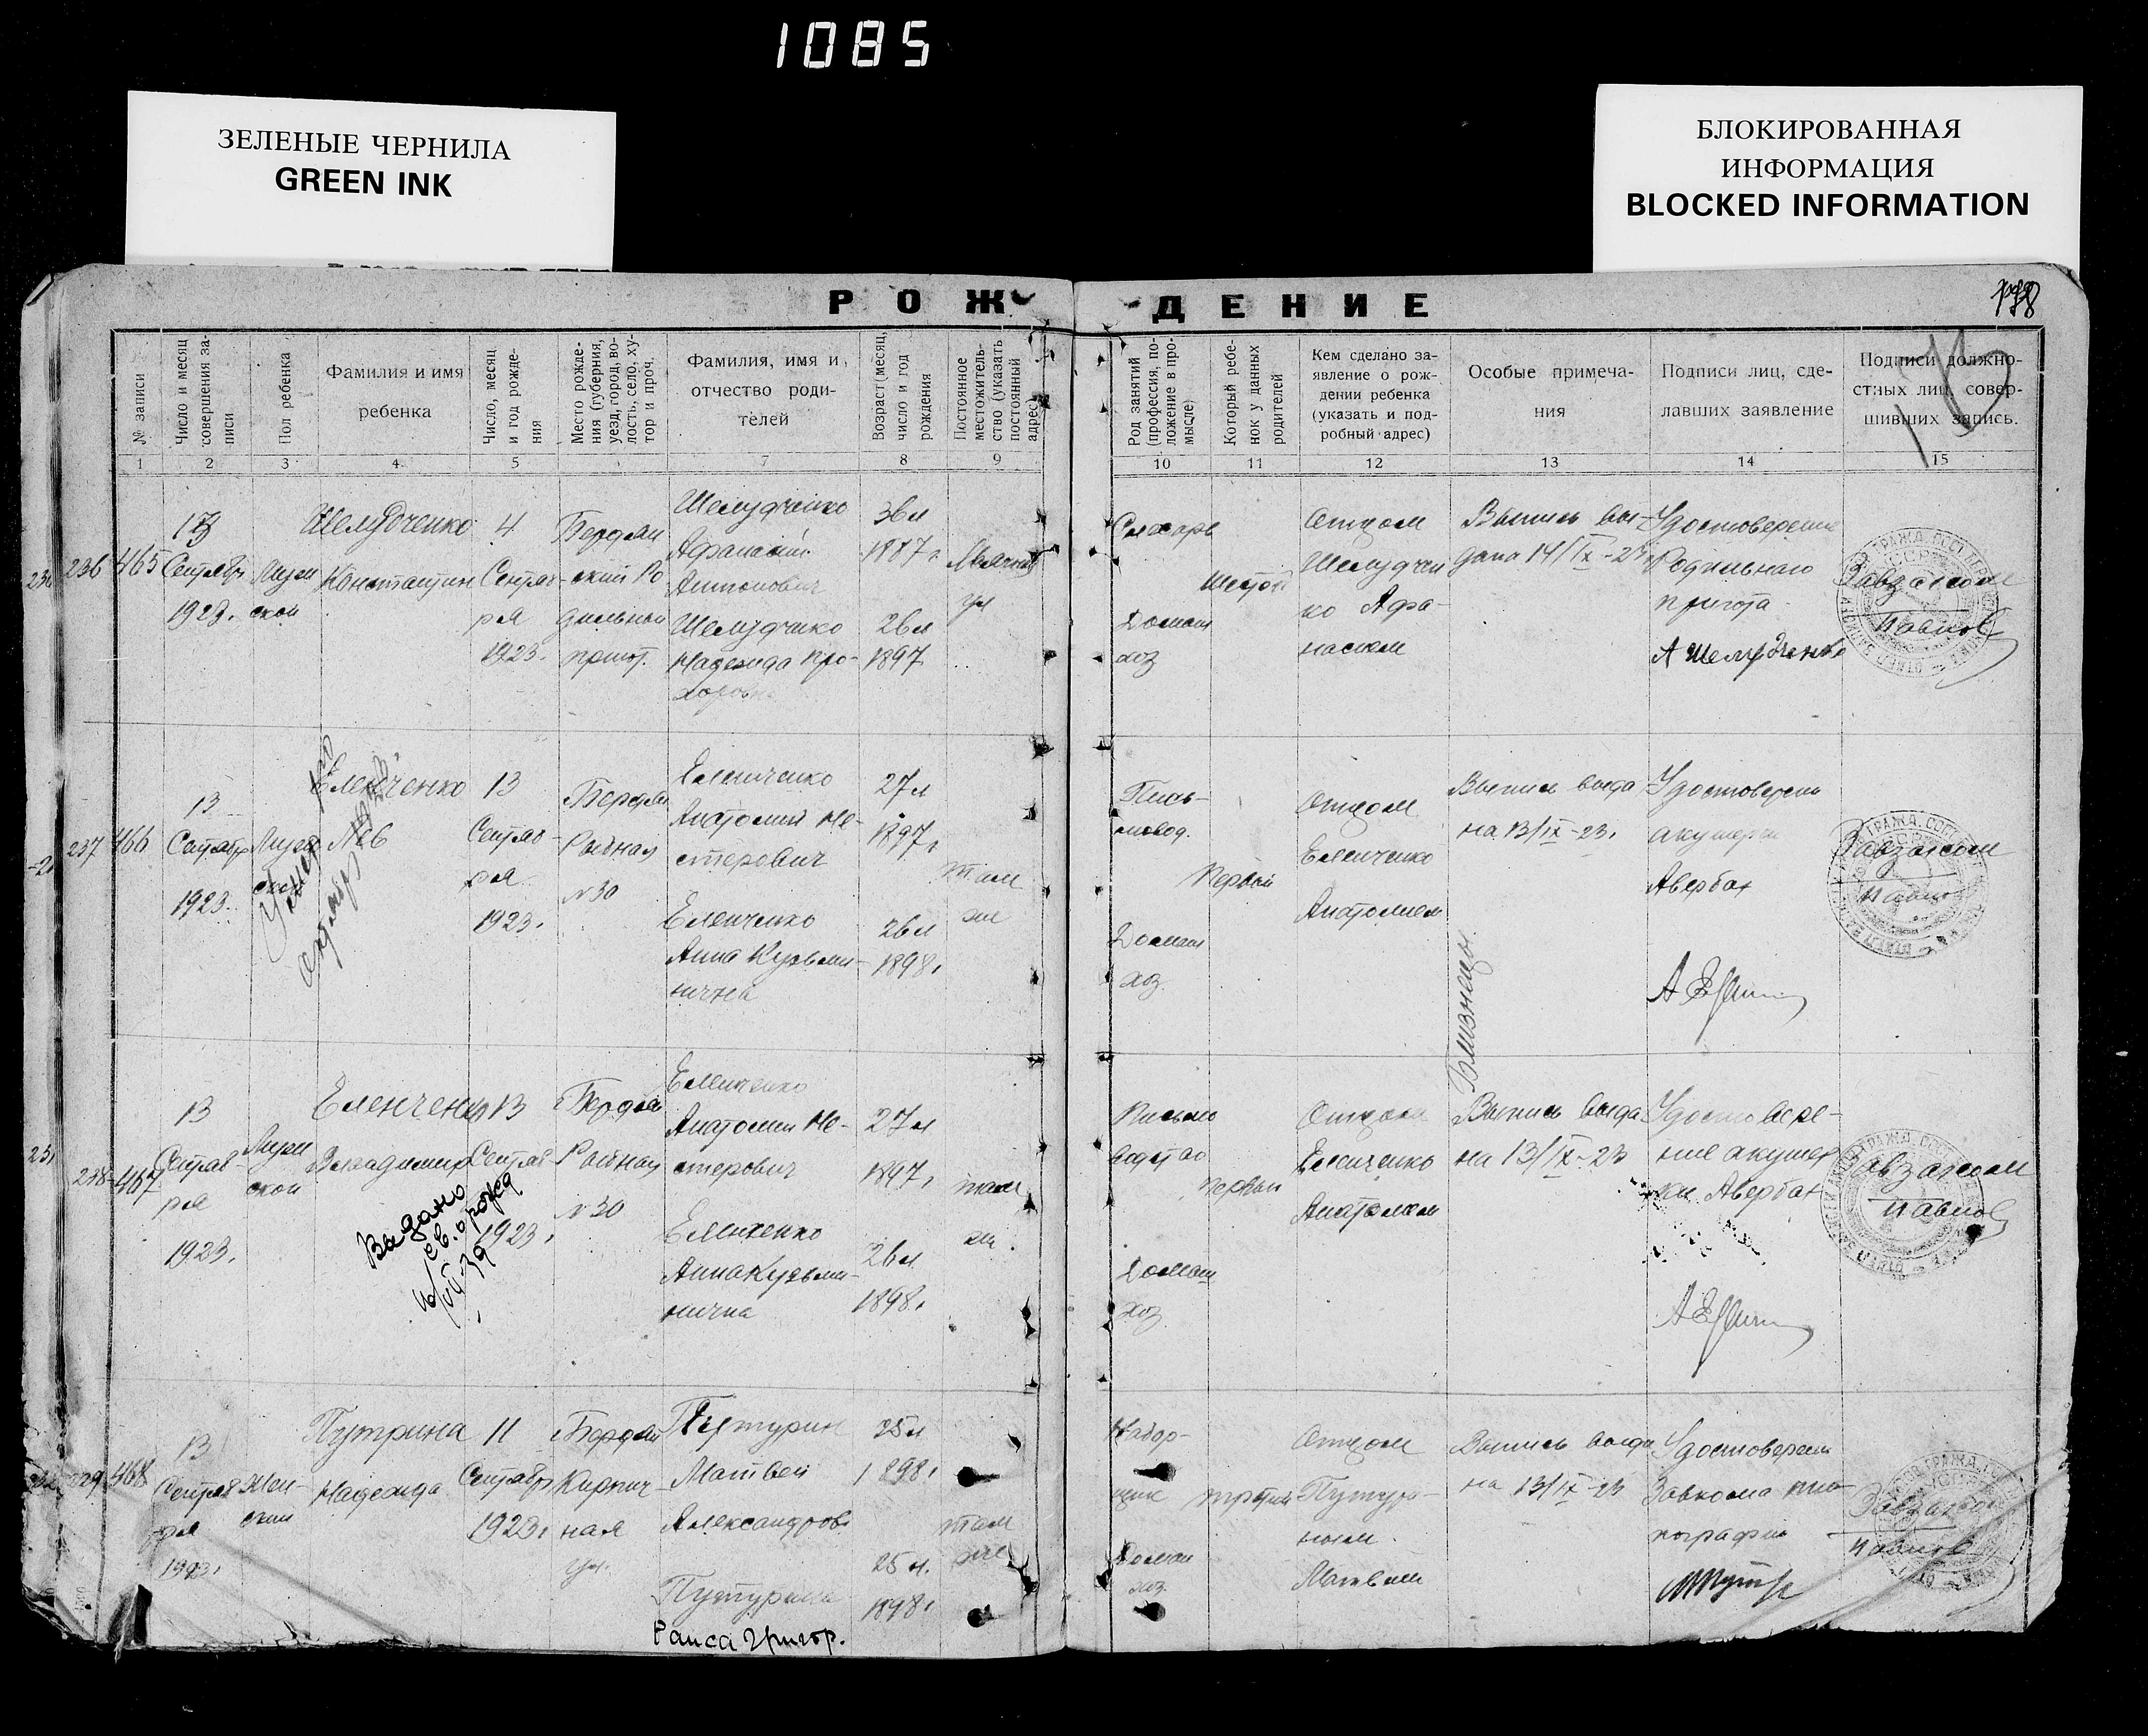 1085
ЗЕЛЕНЫЕ ЧЕРНИЛА
GREEN INK
БЛОКИРОВАННАЯ
ИНФОРМАЦИЯ
BLOCKED INFORMATION
РОЖДЕНИЕ
№ записи
Число и месяц
совершения за-
писи
Пол ребенка
Фамилия и имя
ребенка
Число, месяц
и год рожде-
ния
Место рожде-
ния (губерния,
уезд, город, во-
лость, село, ху-
тор и проч.
Фамилия, имя и
отчество роди-
телей
Возраст (месяц,
число и год
рождения
Постоянное
местожитель-
ство (указать
постоянный
адрес)
Род занятий
(профессия, по-
ложение в про-
мысле)
Который ребе-
нок у данных
родителей
Кем сделано за-
явление о рож-
дении ребенка
(указать и под-
робный адрес)
Особые примеча-
ния
Подписи лиц, сде-
лавших заявление
Подписи должно-
стных лиц, совер-
шивших запись.
1 2 3 4 5 7 8 9 10 11 12 13 14 15
236
465
13
Сентябр
1923.
Муж
ской
Шелудченко
Константин
4
Сентяб
ря
1923.
Бердян
ский Ро
дильный
приют.
Шелудченко
Афанасий
Антонович
Шелудченко
Надежда Про-
хоровна
36 л
1887 г
26 л
1897
ул
Слесарь
Домаш
хоз
Шестой
Отцом
Шелудчен
ко Афа-
насием
Выпись вы-
дана 14/IX-23
Удостоверение
Родильнаго
приюта
А Шелудченко
Завзагсом
Павлов
237
466
13
Сентябр
1923.
Муж
ской
Еленченко
Лев
Умер
октябр
13
Сентяб-
ря
1923.
Бердян
N 30
Еленченко
Анатолий Не-
стерович
Еленченко
Анна Кузьми-
нична
27 л
1897 г
26 л
1898 г
там
же
Пись-
мовод.
Домаш
хоз.
Первый
Отцом
Еленченко
Анатолием
Выпись выда
на 13/IX-23.
Близнецы
Удостоверен
акушерк
Авербах
Завзагсом
Павлов
238
467
13
Сентяб
ря
1923.
Муж
ской
Еленченко
Владимир
Выдано
св. о рожд
10/VII-39
13
Сентяб
1923.
Бердян
N 30
Еленченко
Анатолий Не-
стерович
Еленченко
Анна Кузьми-
нична
27 л
1897 г
26 л
1898 г
там
же.
Письмо
водство
Домаш
хоз.
первый
Отцом
Еленченко
Анатолием
Выпись выда
на 13/IX-23
Удостовере-
ние акушер
ки Авербах
Завзагсом
Павлов
468
13
Сентяб
ря
1923.
Жен-
ский
Путрина
Надежда
11
Сентябр
1923 г
Бердян
Кирпич-
ная
ул.
Путурин
Матвей
Александров
Путурина
Раиса Григор.
25 л
1898 г
25 л.
1898 г
там
же
Набор-
щик
Домаш
хоз.
третий
Отцом
Путури-
ным
Матвеем
Выпись выда
на 13/IX-23
Удостоверен
Завкома типо
пографии
Завзагсом
Павлов